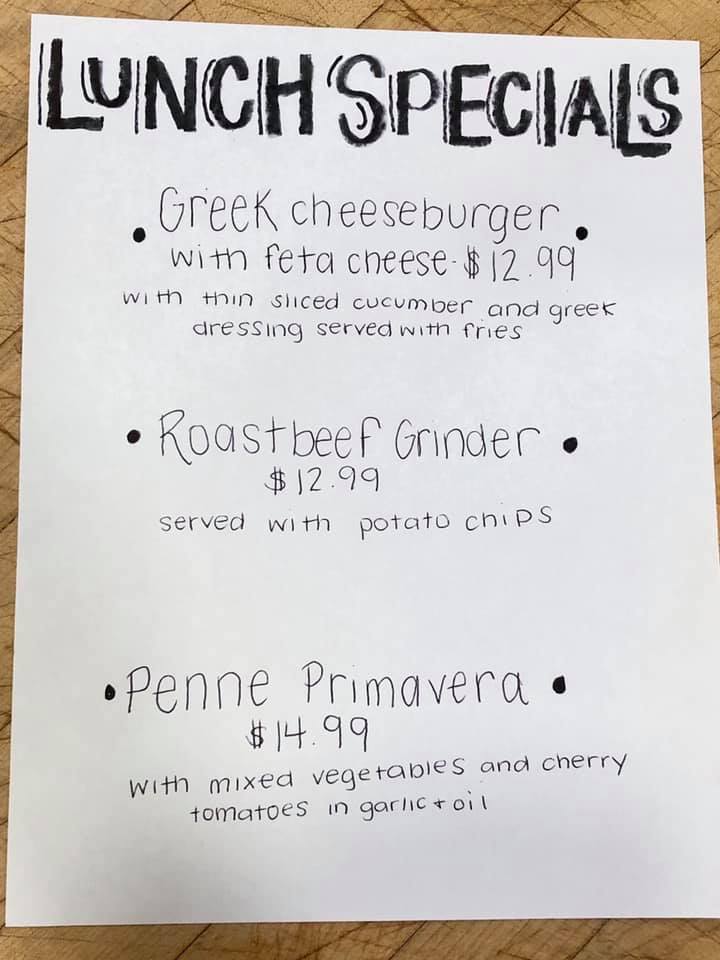 LUNCH SPECIALS
• Greek cheeseburger •
with feta cheese - $12.99
with thin sliced cucumber and greek
dressing served with fries
• Roastbeef Grinder •
$12.99
served with potato chips
• Penne Primavera •
$14.99
with mixed vegetables and cherry
tomatoes in garlic + oil